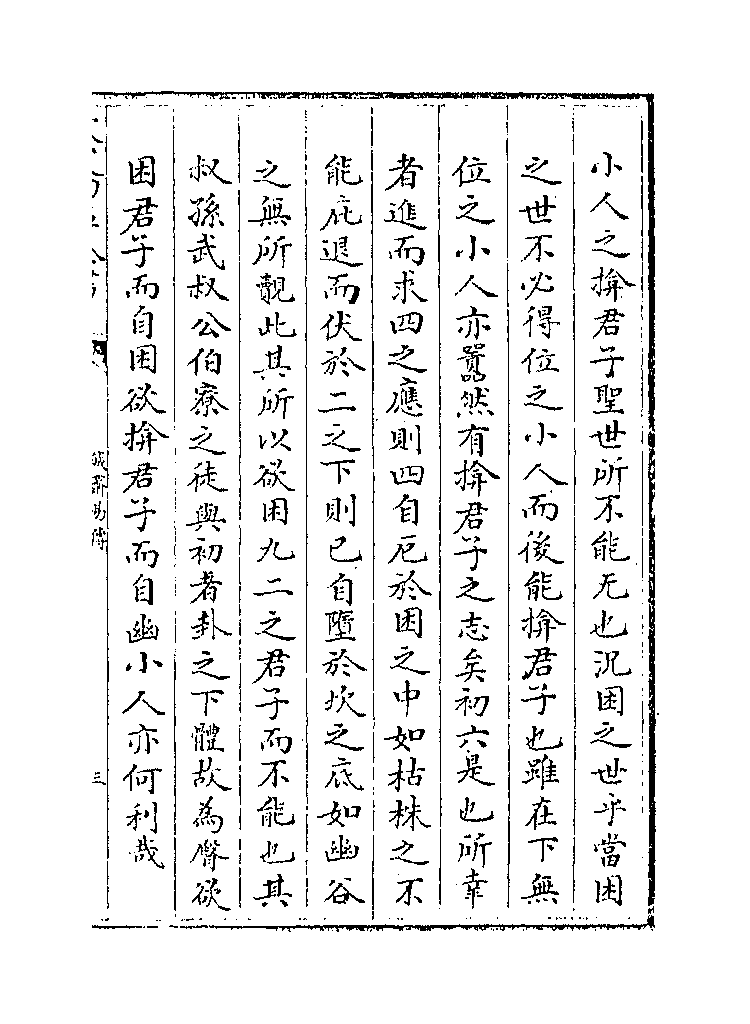 小人之揜君子聖世所不能无也況困之世乎當困
之世不必得位之小人而後能揜君子也雖在下無
位之小人亦囂然有揜君子之志矣初六是也所幸
者進而求四之應則四自厄於困之中如枯株之不
能庇退而伏於二之下則已自墮於坎之底如幽谷
之無所覿此其所以欲困九二之君子而不能也其
叔孫武叔公伯寮之徒與初者卦之下體故為臀欲
困君子而自困欲揜君子而自幽小人亦何利哉
誠齋易傳
三